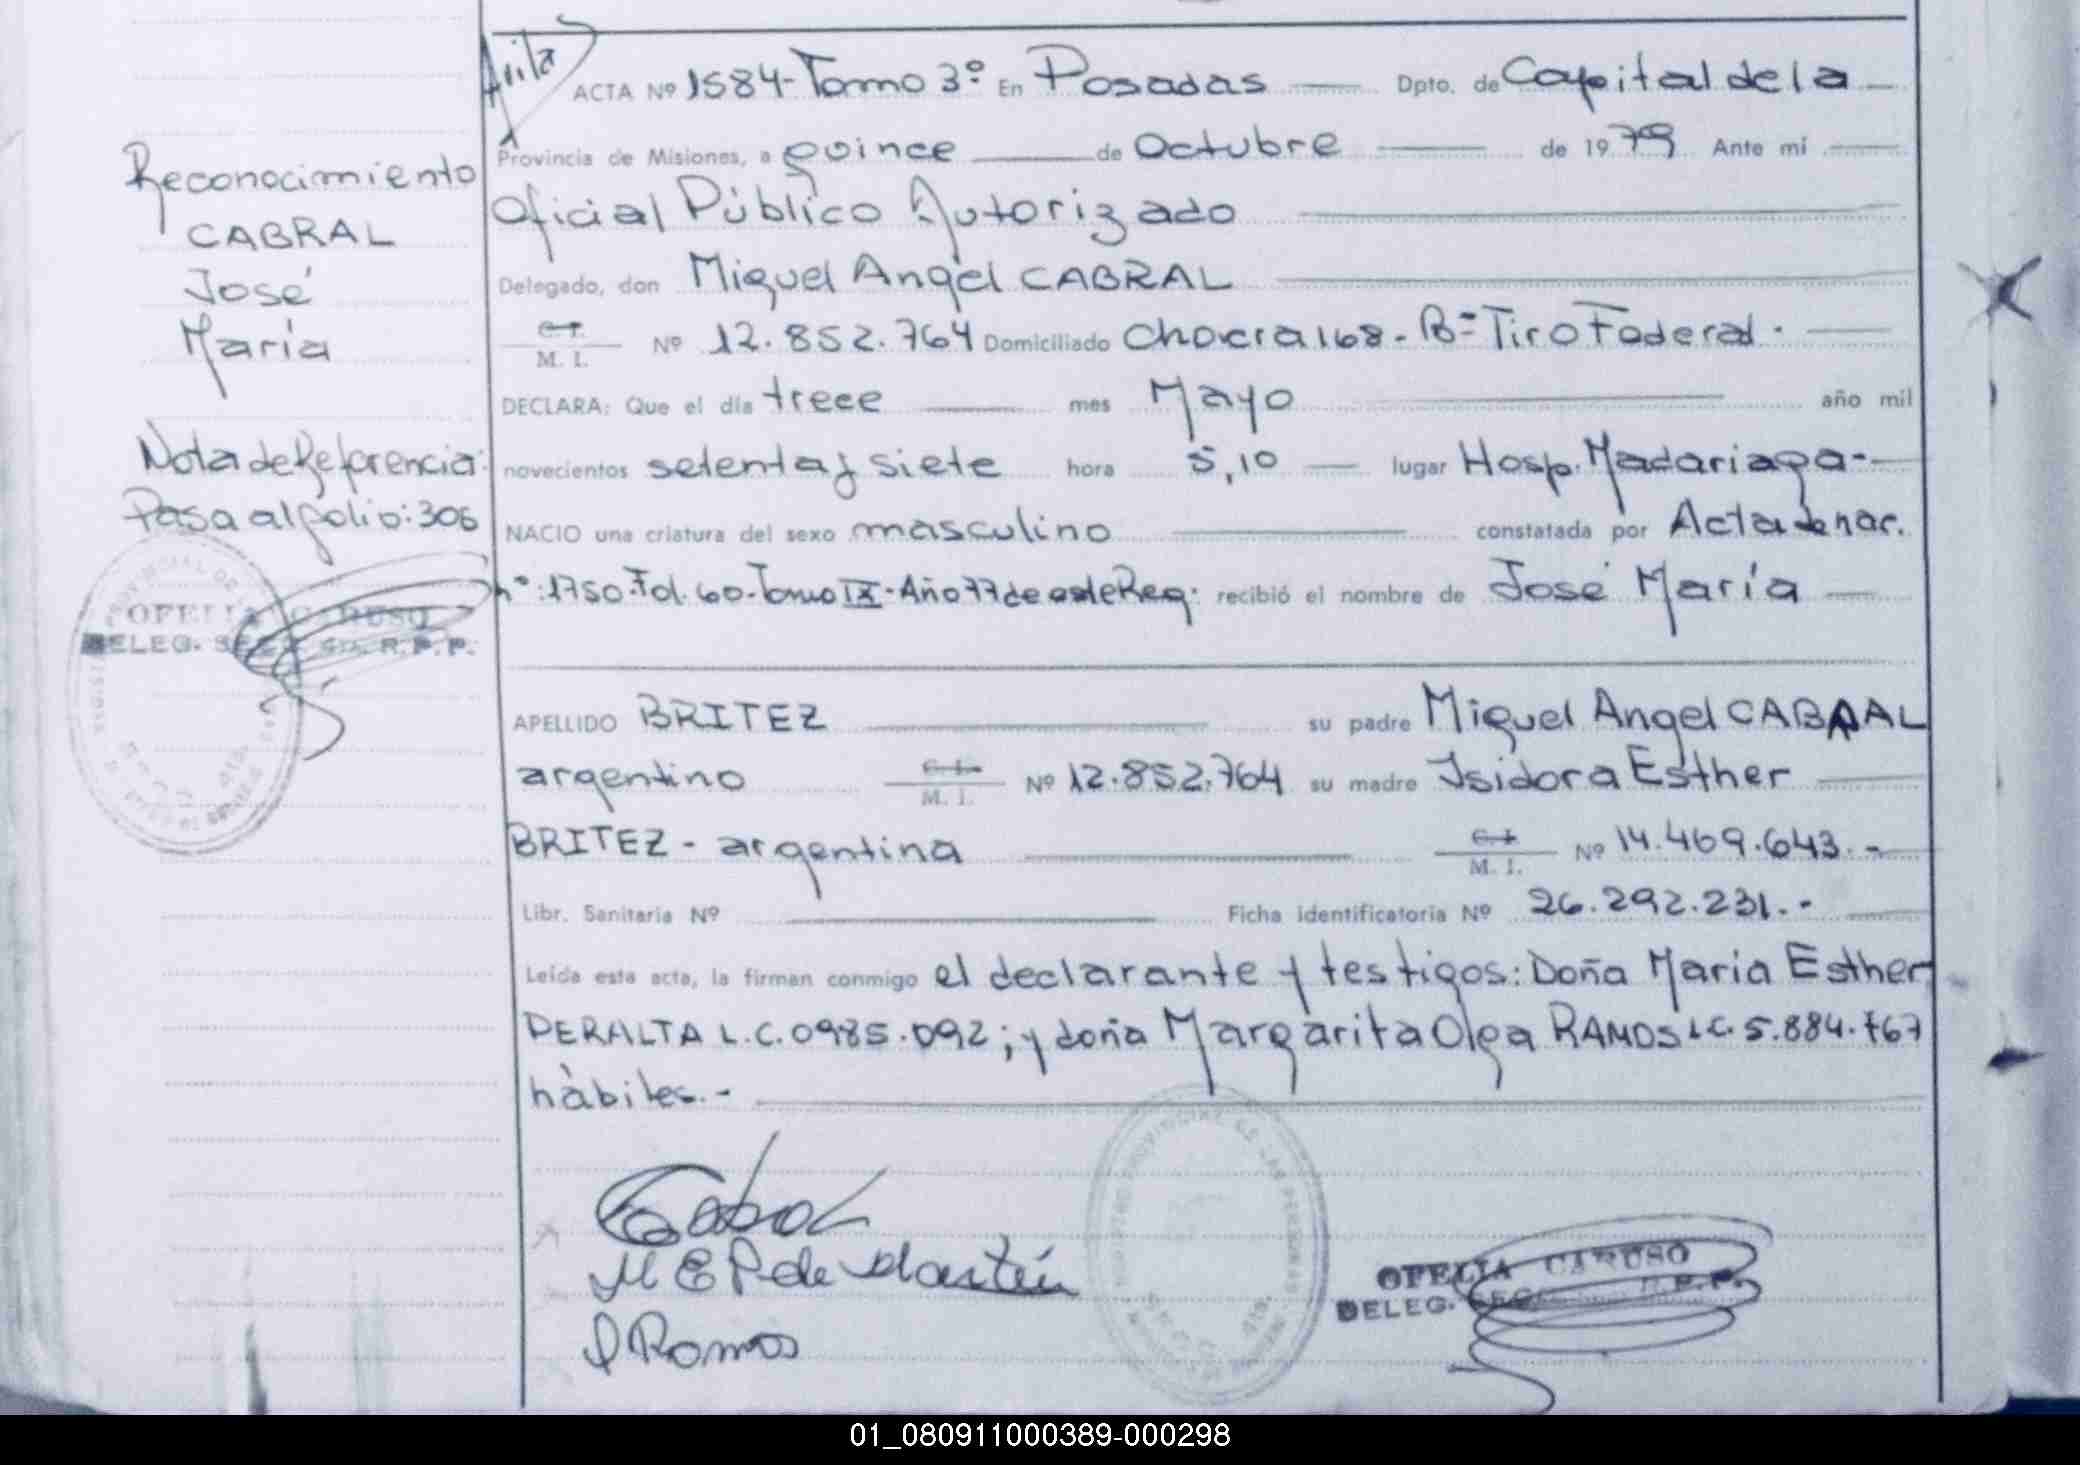 Reconocimiento
CABRAL
José
María
Nota de Referencia:
Pasa al folio: 306
OFELIA CARUSO
DELEG. R.P.P.
ACTA Nº 1584-Tomo 3º En Posadas Dpto. de Capital de la
Provincia de Misiones, a quince de Octubre de 1979 Ante mí
Oficial Público Autorizado
Delegado, don Miguel Angel CABRAL
C.I.
M. I. Nº 12.852.764 Domiciliado Chacra 168 - Bº Tiro Federal.
DECLARA: Que el día trece mes Mayo año mil
novecientos setenta y siete hora 5,10 lugar Hosp. Madariaga-
NACIO una criatura del sexo masculino constatada por Acta de nac.
nº: 1750. Fol. 60. Tomo IX - Año 77 de este Reg. recibió el nombre de José María
APELLIDO BRITEZ su padre Miguel Angel CABRAL
argentino C.I. M. I. Nº 12.852.764 su madre Isidora Esther
BRITEZ - argentina C.I. M. I. Nº 14.469.643.-
Libr. Sanitaria Nº Ficha identificatoria Nº 26.292.231.-
Leída esta acta, la firman conmigo el declarante y testigos: Doña Maria Esther
PERALTA L.C. 0985.092; y doña Margarita Olga RAMOS L.C. 5.884.767
hábiles.-
Cabral
M E P de
Ramos
OFELIA CARUSO
DELEG. R.P.P.
01_080911000389-000298